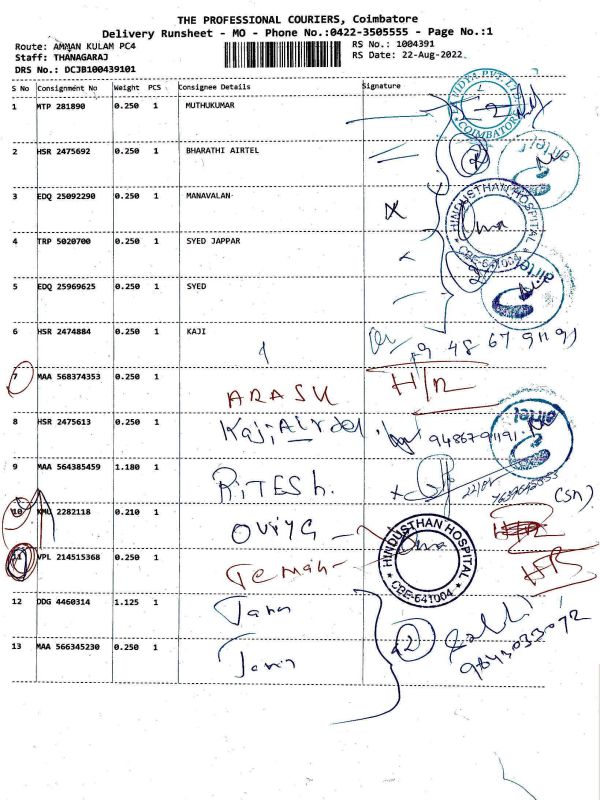 THE PROFESSIONAL COURIERS, Coimbatore
Delivery Runsheet - MO - Phone No.:0422-3505555 - Page No.:1
Route: AMMAN KULAM PC4 RS No.: 1004391
Staff: THANAGARAJ RS Date: 22-Aug-2022
DRS No.: DCJB100439101
S No Consignment No Weight PCS Consignee Details Signature
1 MTP 281890 0.250 1 MUTHUKUMAR
COIMBATORE
2 HSR 2475692 0.250 1 BHARATHI AIRTEL
airtel
3 EDQ 25092290 0.250 1 MANAVALAN
HINDUSTHAN HOSPITAL
CBE-641004
4 TRP 5020700 0.250 1 SYED JAPPAR
airtel
5 EDQ 25969625 0.250 1 SYED
6 HSR 2474884 0.250 1 KAJI
7 MAA 568374353 0.250 1 ARASU H/R
8 HSR 2475613 0.250 1 9486791191
airtel
9 MAA 564385459 1.180 1 RITESH.
10 KMU 2282118 0.210 1 OVIYA
HINDUSTHAN HOSPITAL
CBE-641004
11 VPL 214515368 0.250 1
12 DDG 4460314 1.125 1
13 MAA 566345230 0.250 1